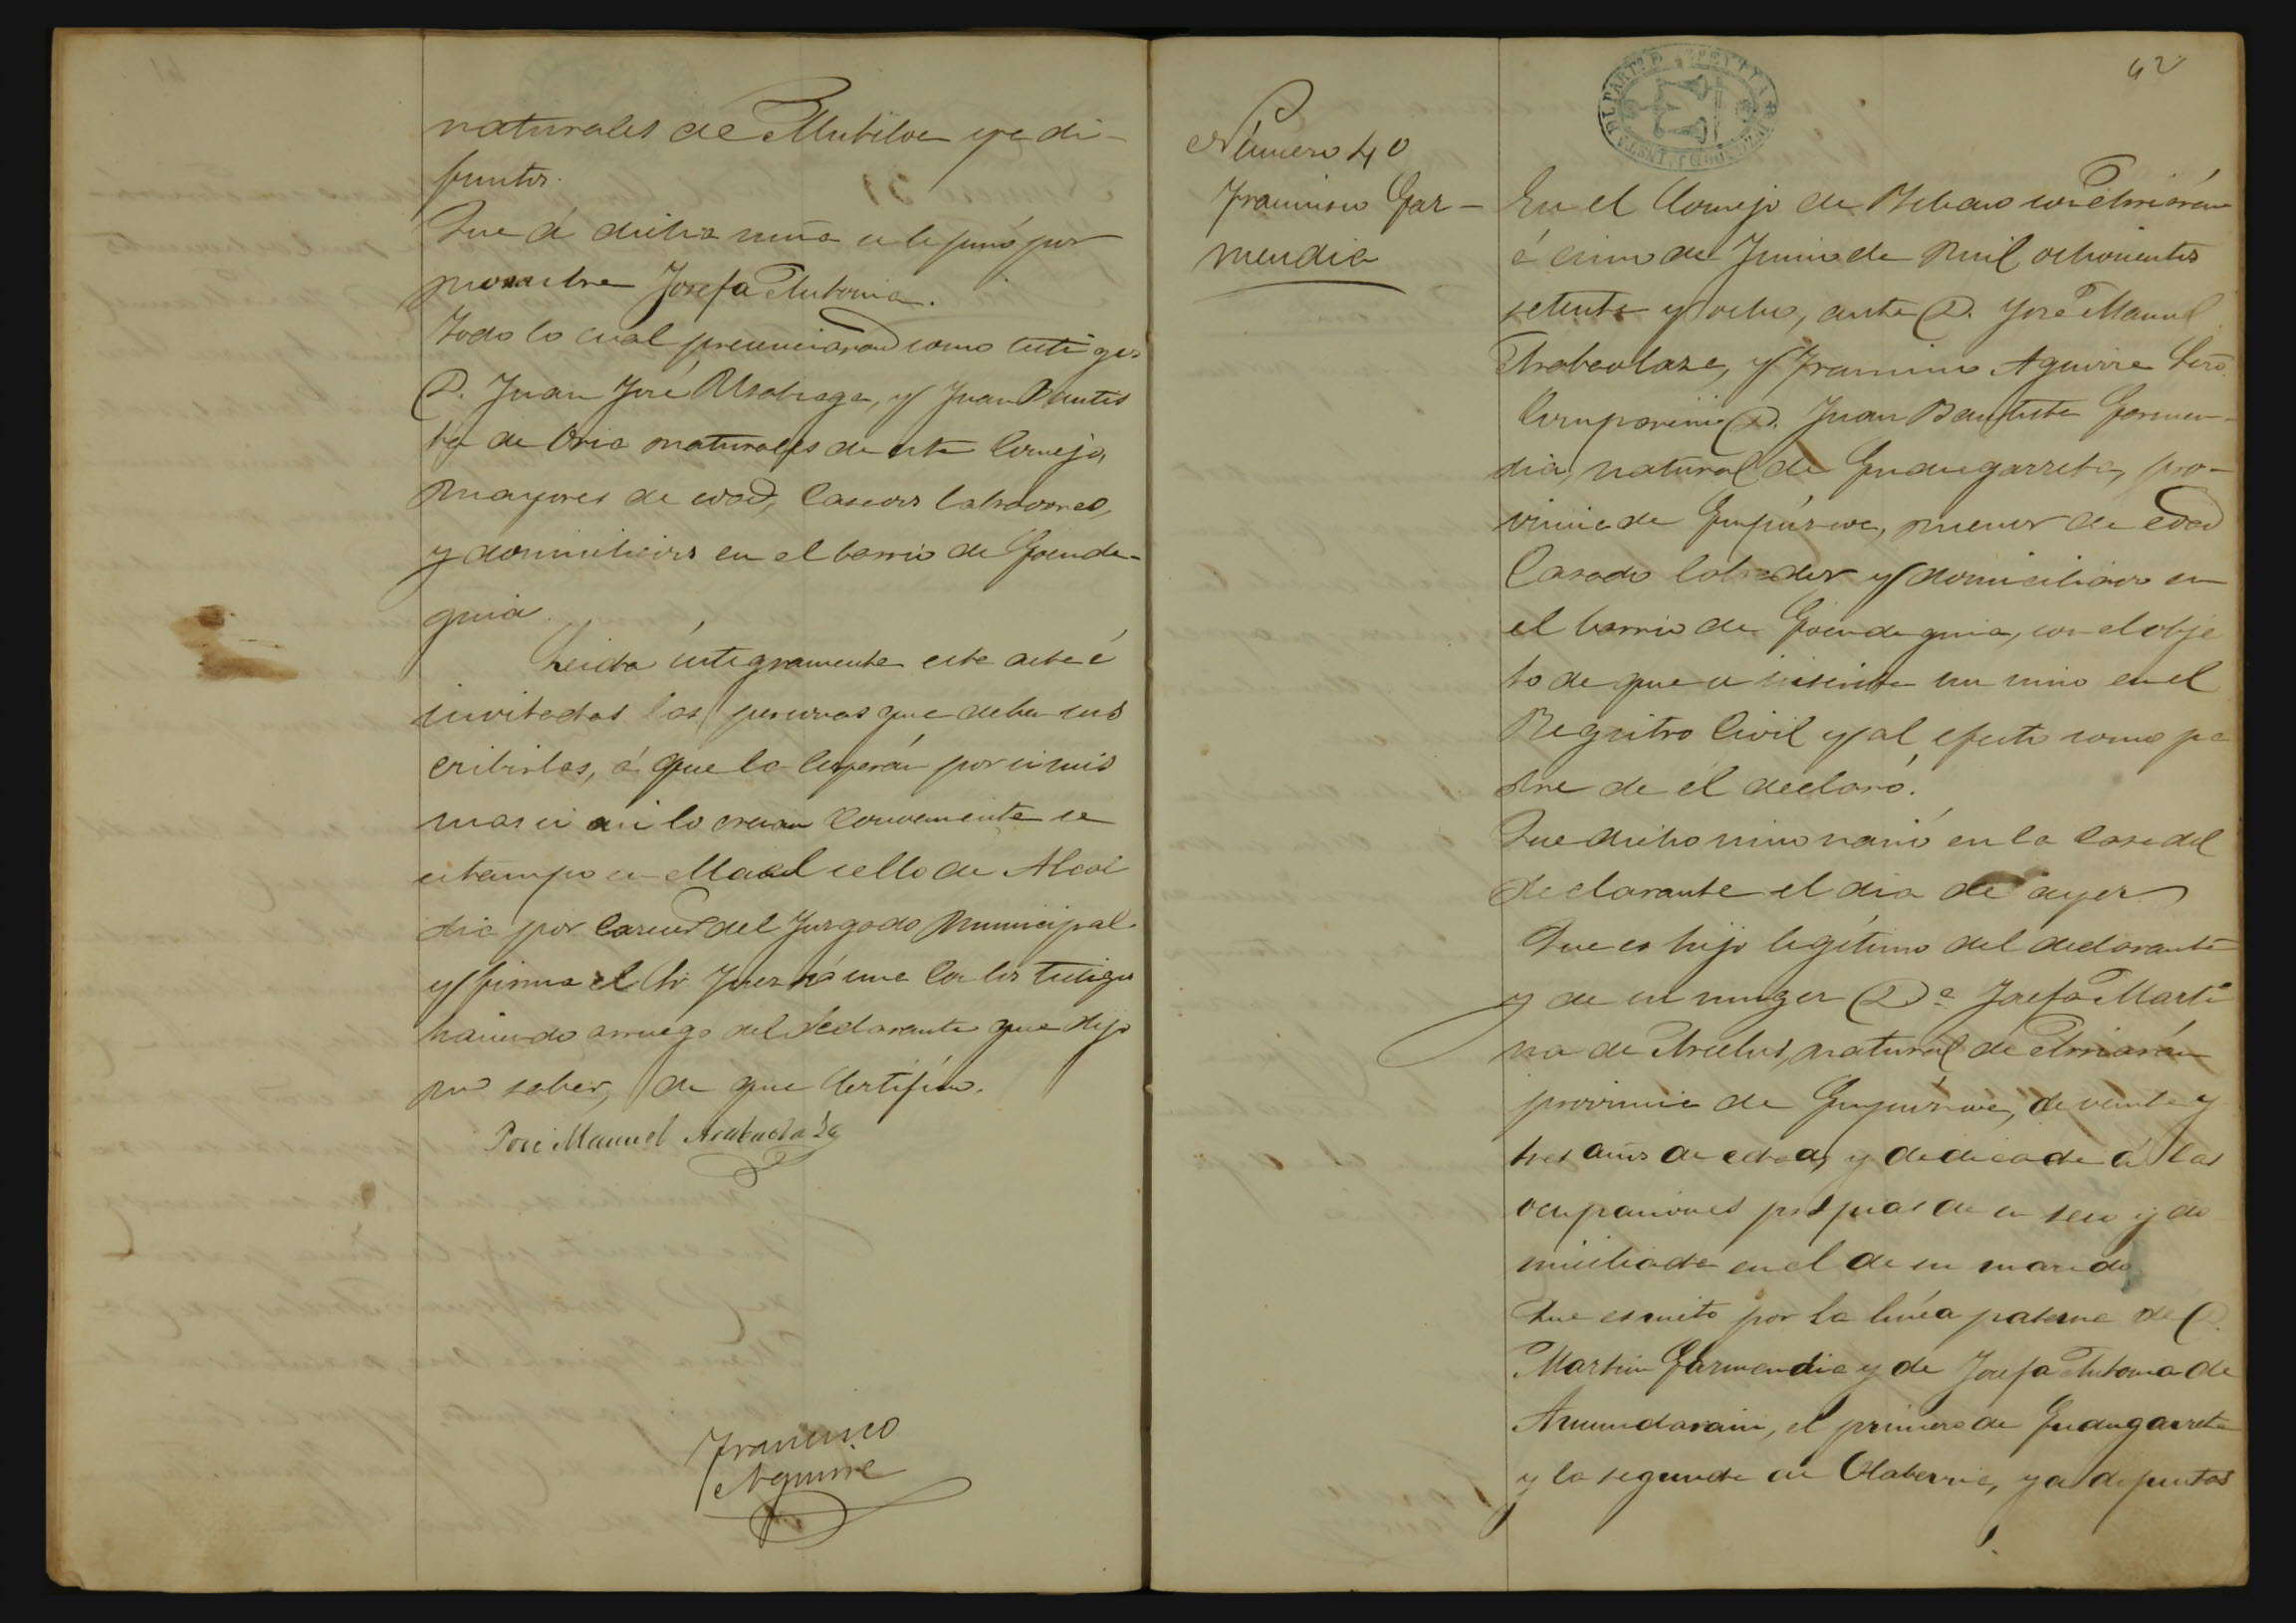 naturales de Mutiloa ya di-
funtos.
Que á dicha niña se le puso por
nombre Josefa Antonia.
Todo lo cual presenciaron como testigos
D. Juan José Usabiaga, y Juan Bautis
ta de Oria naturales de este Concejo,
mayores de edad, Caseros labradores,
y domiciliados en el barrio de Goende-
guia.
Leida íntegramente esta acta é
invitadas las personas que deben sus
cribirlas, á que la leyerán por si mis
mas si asi lo creian Conveniente se
estampo en ella el sello de Alcal
dia por Carecer del Juzgado Municipal.
y firma el Sr. Juez con los testigos
haciendo arruego del declarante que dijo
no saber, de que Certifico.
José Manuel Arabaolaza
Francisco
Aguirre
42
Número 40
Francisco Gar-
mendia
En el Concejo de Astigarreta
á cinco de Junio de mil ochocientos
setenta y ocho, ante D. José Manuel
Arabaolaza, y Francisco Aguirre Secrº.
Comparecio D. Juan Bautista Garmen-
dia, natural de Gudugarreta, pro-
vincia de Guipúzcoa, menor de edad
Casado labrador y domiciliado en
el barrio de Goendeguia, con el obje
to de que se inscriba un niño en el
Registro Civil y al efecto como pa
dre de él declaró.
Que dicho niño nació en la Casa del
declarante el dia de ayer
Que es hijo legítimo del declarante
y de su muger Dª Josefa Marti
na de natural de
provincia de Guipúzcoa, de veinte y
tres años de edad, y dedicada á las
ocupaciones propias de su sexo y do
miciliada en el de su marido
Que es nieto por la línea paterna de D.
Martin Garmendia y de Josefa Antonia de
Amundarain, el primero de Gudugarreta
y la segunda de Olaberria, ya difuntos